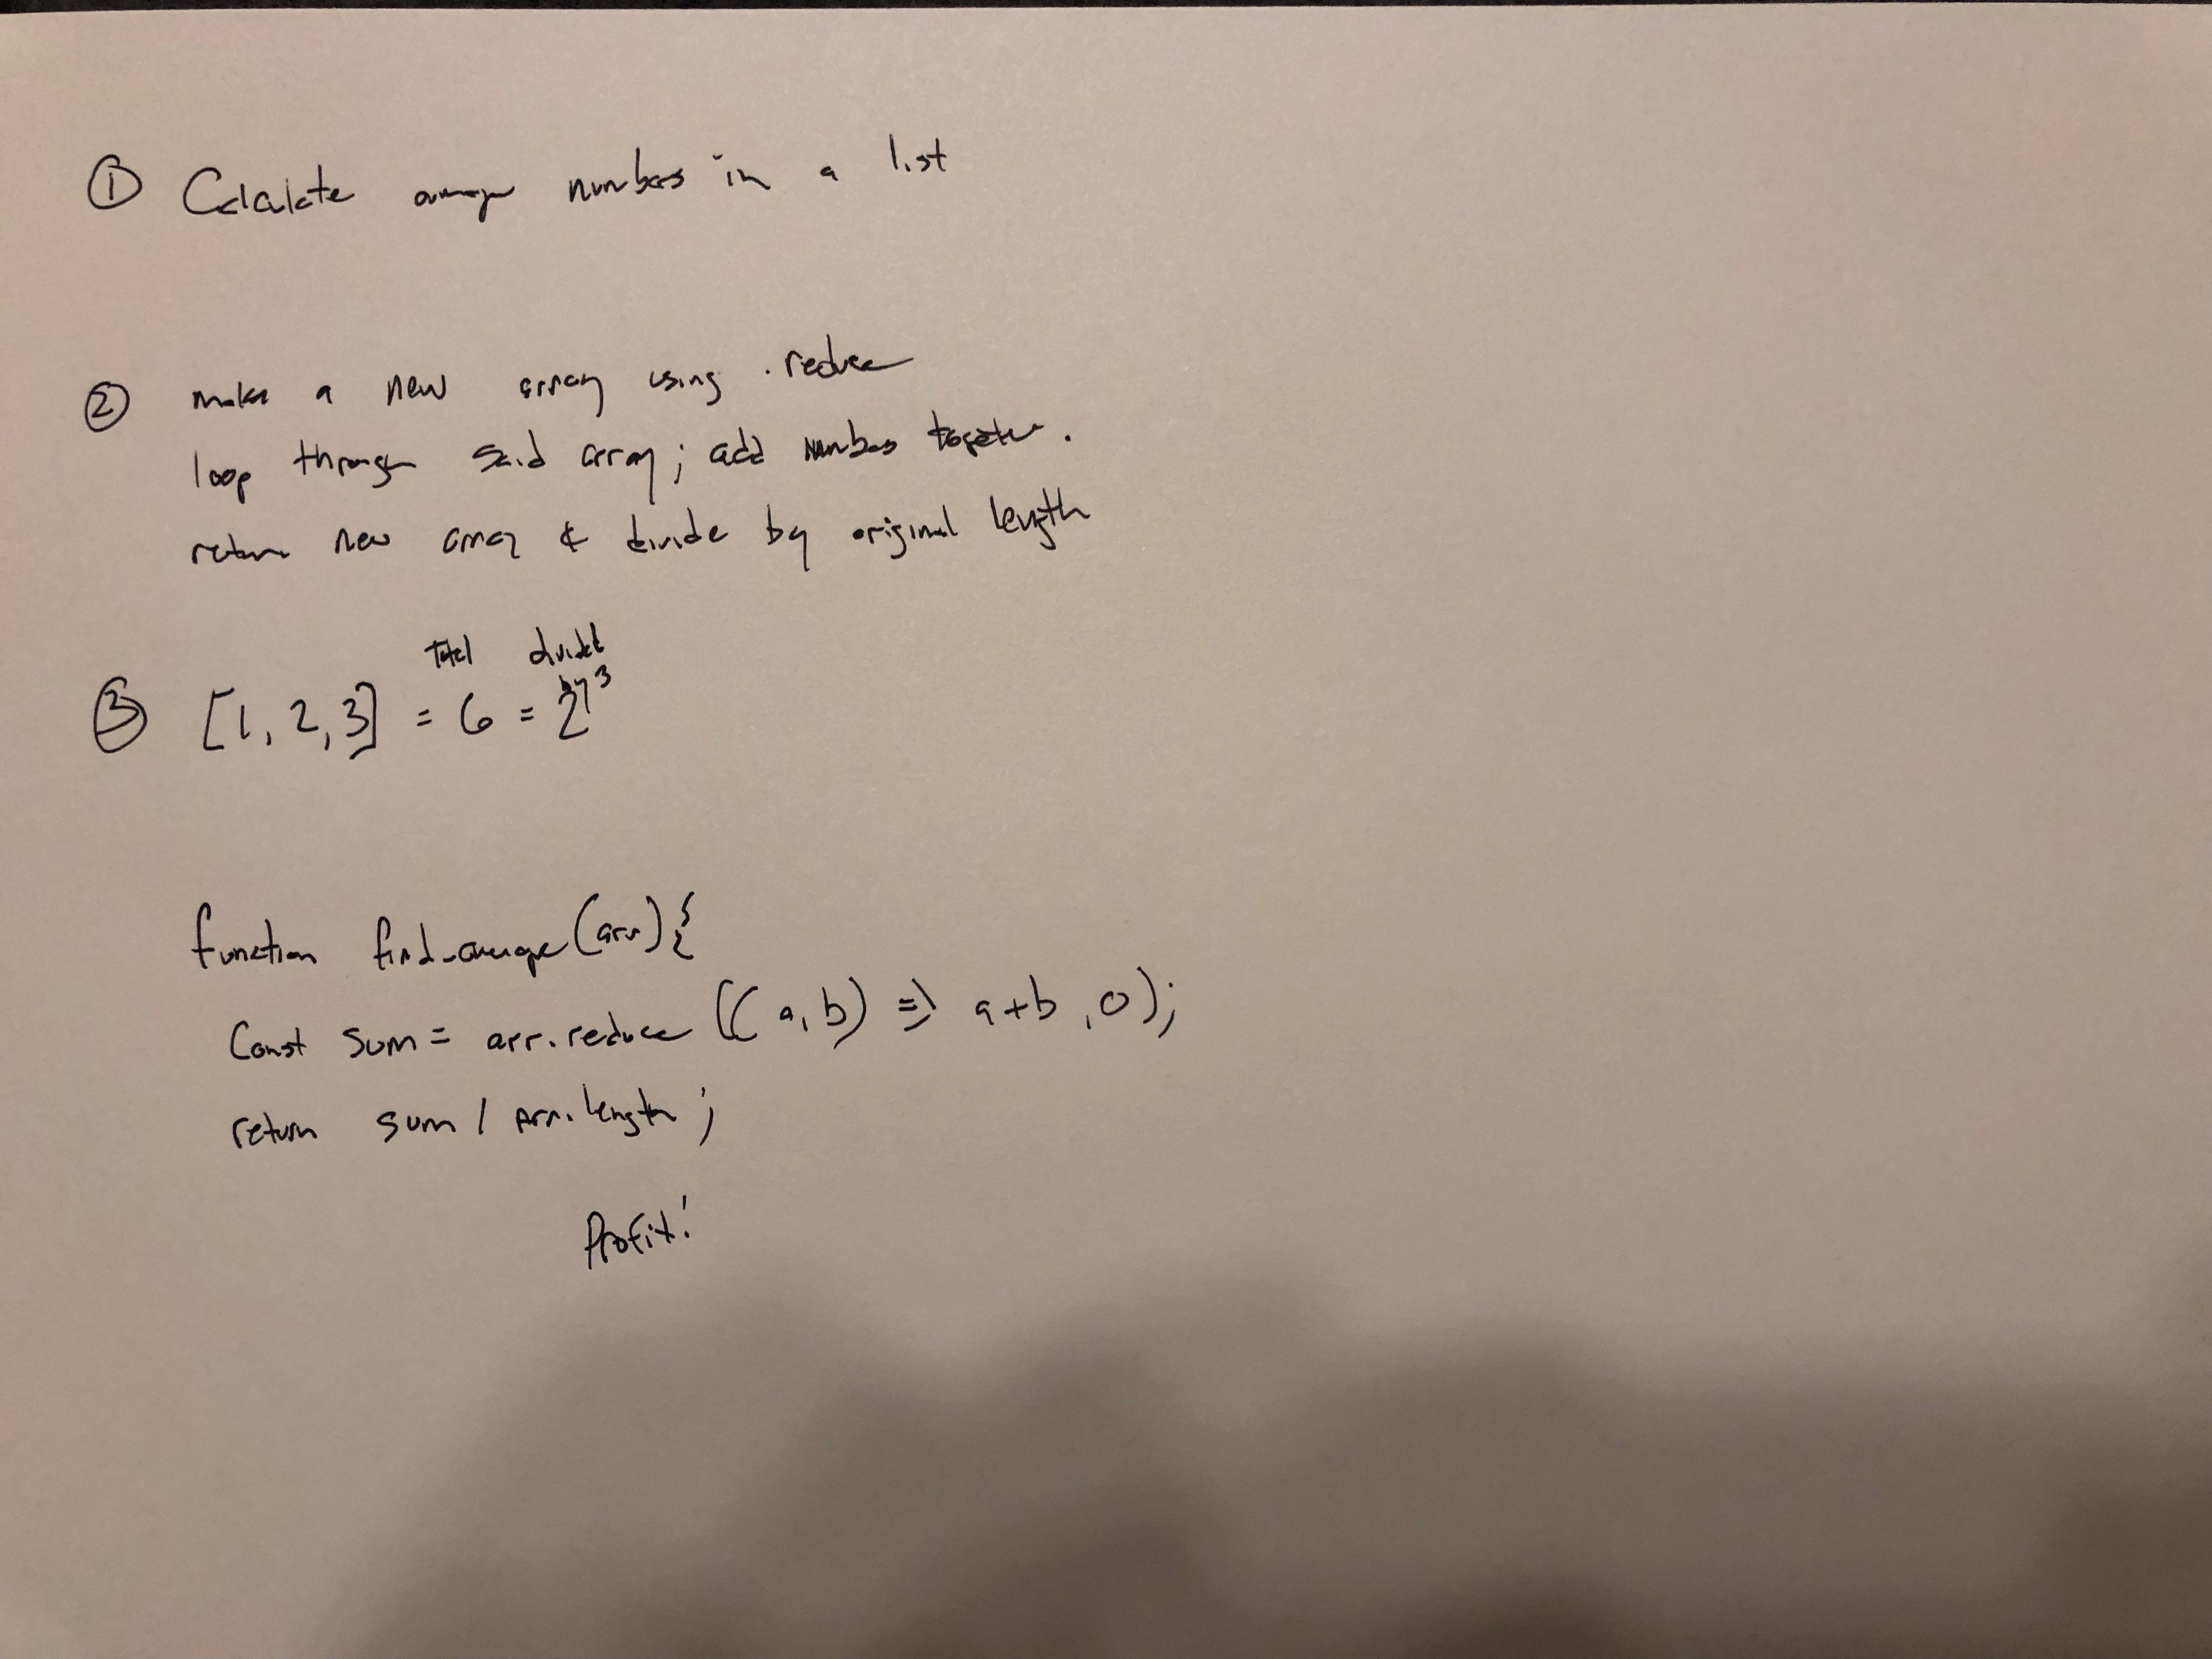 ① Calculate average numbers in a list
② make a new array using .reduce
loop through said array; add numbers together.
return new array & divide by original length
total divided
by 3
③ [1, 2, 3] = 6 = 2
function find_average(arr){
Const sum = arr.reduce((a,b) => a+b ,0);
return sum / arr.length ;
Profit!